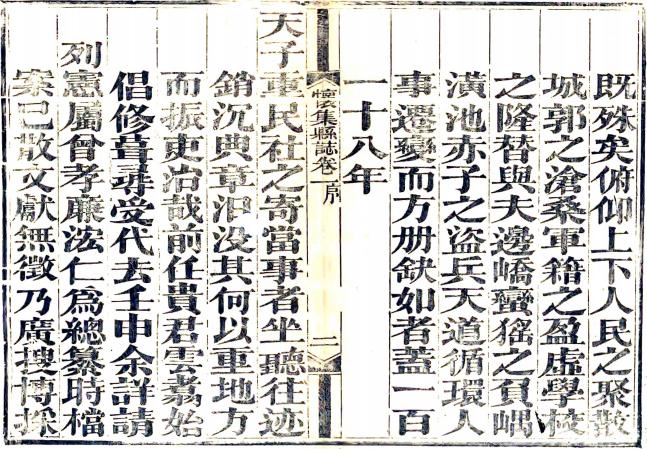 既殊矣俯仰上下人民之聚散
城郭之滄桑軍籍之盈虛學校
之隆替與夫邊嶠蠻猺之負嵎
潢池赤子之盜兵天道循環人
事遷變而方册缺如者蓋一百
一十八年
懷集縣誌卷一序 二
天子重民社之寄當事者坐聽往迹
銷沉典章汩没其何以重地方
而振吏治哉前任貴君雲翥始
倡修葺尋受代去壬申余詳請
列憲屬曾孝廉浤仁爲總纂時檔
案已散文獻無徵乃廣搜博採